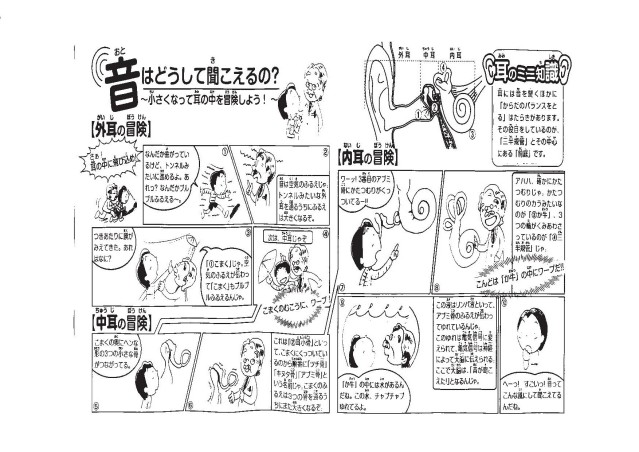 音はどうして聞こえるの?
~小さくなって耳の中を冒険しよう!~
【外耳の冒険】
さぁ!
耳の中に飛び込め!
①
なんだか曲がってい
るけど、トンネルみ
たいに進めるよ。あ
れっ?なんだかブル
ブルふるえる~。
②
音は空気のふるえじゃ。
トンネルみたいな外
耳を通るうちにふるえ
は大きくなるぞ。
③
つきあたりに膜が
みえてきた。あれ
はなに?
「①こまく」じゃ。空
気のふるえが伝わっ
て「こまく」もブルブ
ルふるえるんじゃ。
④
次は、中耳じゃぞ
こまくのむこうに、ワープ
【中耳の冒険】
⑤
こまくの奥にヘンな
形の3つの小さな骨
がつながってる。
⑥
これは「②耳小骨」といっ
て、こまくにくっついてい
るのから順番に「ツチ骨」
「キヌタ骨」「アブミ骨」と
いう名前じゃ。こまくのふ
るえは3つの骨を通るう
ちにまた大きくなるぞ。
外耳 中耳 内耳
耳のミニ知識
耳には音を聞くほかに
「からだのバランスをと
る」はたらきがあります。
その役目をしているのが、
「三半規管」とその中心
にある「前庭」です。
【内耳の冒険】
⑦
ワーッ!3番目のアブミ
骨にかたつむりがくっ
ついてるー!!
⑧
アハハ、確かにかた
つむりじゃ。かたつ
むりのカラみたいな
のが「③か牛」、3
つの輪がくみあわさ
っているのが「④三
半規管」じゃ。
こんどは「か牛」の中にワープだ!!
「か牛」の中には水があるん
だね。この水、チャプチャプ
ゆれてるよ。
この液はリンパ液といって、
アブミ骨のふるえが伝わっ
てゆれているんじゃ。
このゆれは電気信号に変
えられて、電気信号は神経
によって大脳に伝えられる
ここで大脳は、「音が聞こ
えた」となるんじゃ。
へーっ!すごいっ!音って
こんな風にして聞こえてる
んだね。